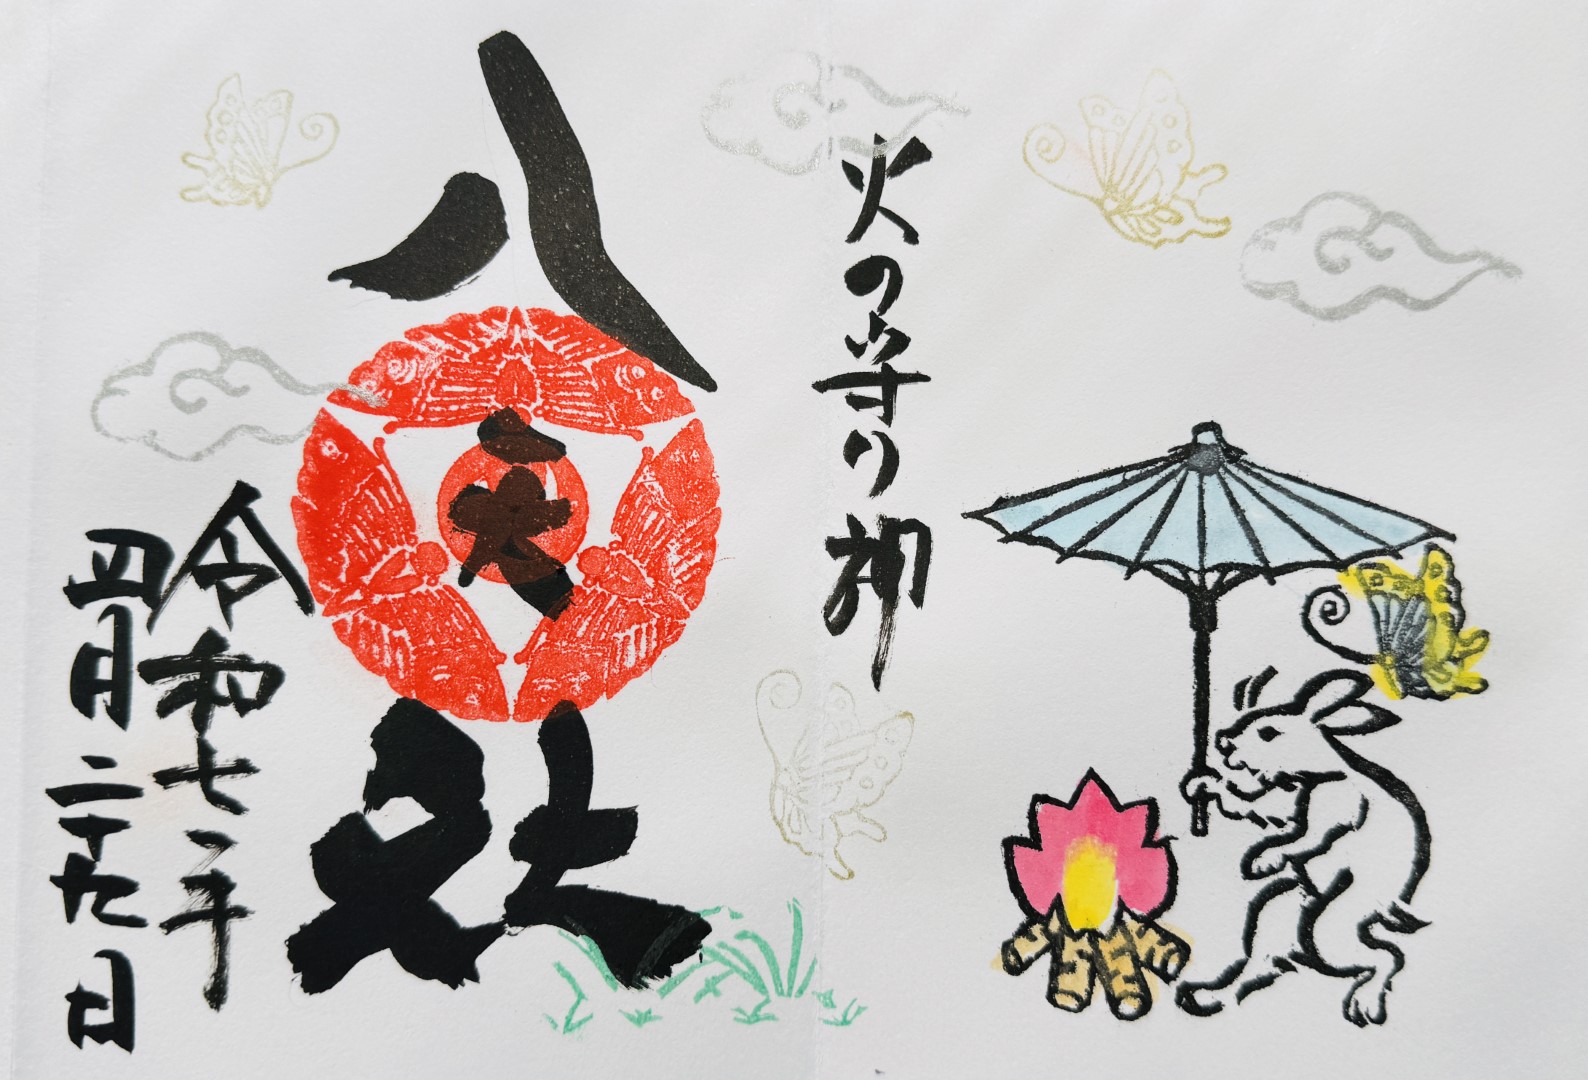 火の守り神
八天社
令和七年
四月二十九日